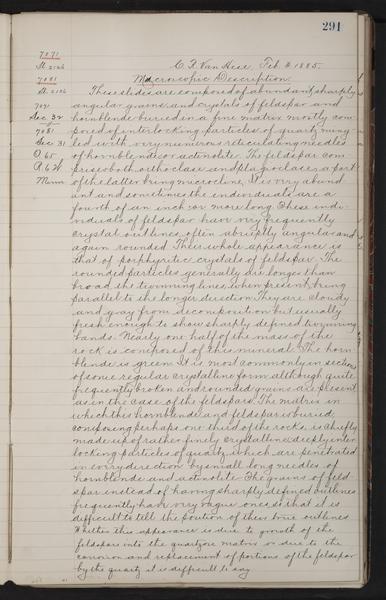 291
C. R. Van Hise, Feb 4, 1885.
7071
Sl. 2126
7081
Sl. 2126
7071
Sec. 32
7081
Sec 31
O. 65
R. 6 W
Menn
Microscopic Description.
These slides are composed of abundant sharply
angular grains and crystals of feldspar and
hornblende buried in a fine matrix mostly com
posed of interlocking particles of quartz ming
led with very numerous reticulating needles
of hornblende or actinolite. The feldspar com
prises both orthoclase and plagioclase, a part
of the latter being microcline, It is very abund
ant and sometimes the individuals are a
fourth of an inch or more long. These indi-
viduals of feldspar have very frequently
crystal outlines, often abruptly angular and
again rounded. Their whole appearance is
that of porphyritic crystals of feldspar. The
rounded particles generally are longer than
broad the twinning lines, when present, being
parallel to the longer direction. They are cloudy
and gray from decomposition but usually
fresh enough to show sharply defined twinning
bands. Nearly one half of the mass of the
rock is composed of this mineral. The horn
blende is green. It is most commonly in sections
of some regular crystalline form although quite
frequently broken and rounded grains are present
as in the case of the feldspars. The matrix in
which this hornblende and feldspar is buried,
composing perhaps one third of the rock, is chiefly
made up of rather finely crystalline deeply inter
locking particles of quartz which are penetrated
in every direction by small long needles of
hornblende and actinolite. The grains of feld-
spar instead of having sharply defined outlines
frequently have very vague ones, so that it is
difficult to tell the position of their true outlines.
Whether this appearance is due to growth of the
feldspars into the quartzose matrix or due to the
corrosion and replacement of portions of the feldspar
by the quartz it is difficult to say.